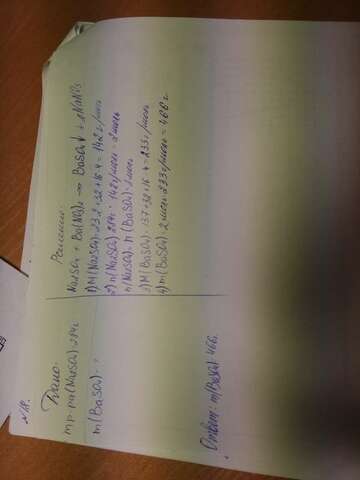 N18.
Дано:
mр-ра(Na2SO4)=284г
m(BaSO4)-?
Решение:
Na2SO4 + Ba(NO3)2 → BaSO4↓ + 2NaNO3
1) M(Na2SO4)=23·2+32+16·4=142 г/моль
2) n(Na2SO4)=284г:142г/моль=2моль
n(Na2SO4)=n(BaSO4)=2моль
3) M(BaSO4)=137+32+16·4=233г/моль
4) m(BaSO4)=2моль·233г/моль=466г.
Ответ: m(BaSO4)=466.